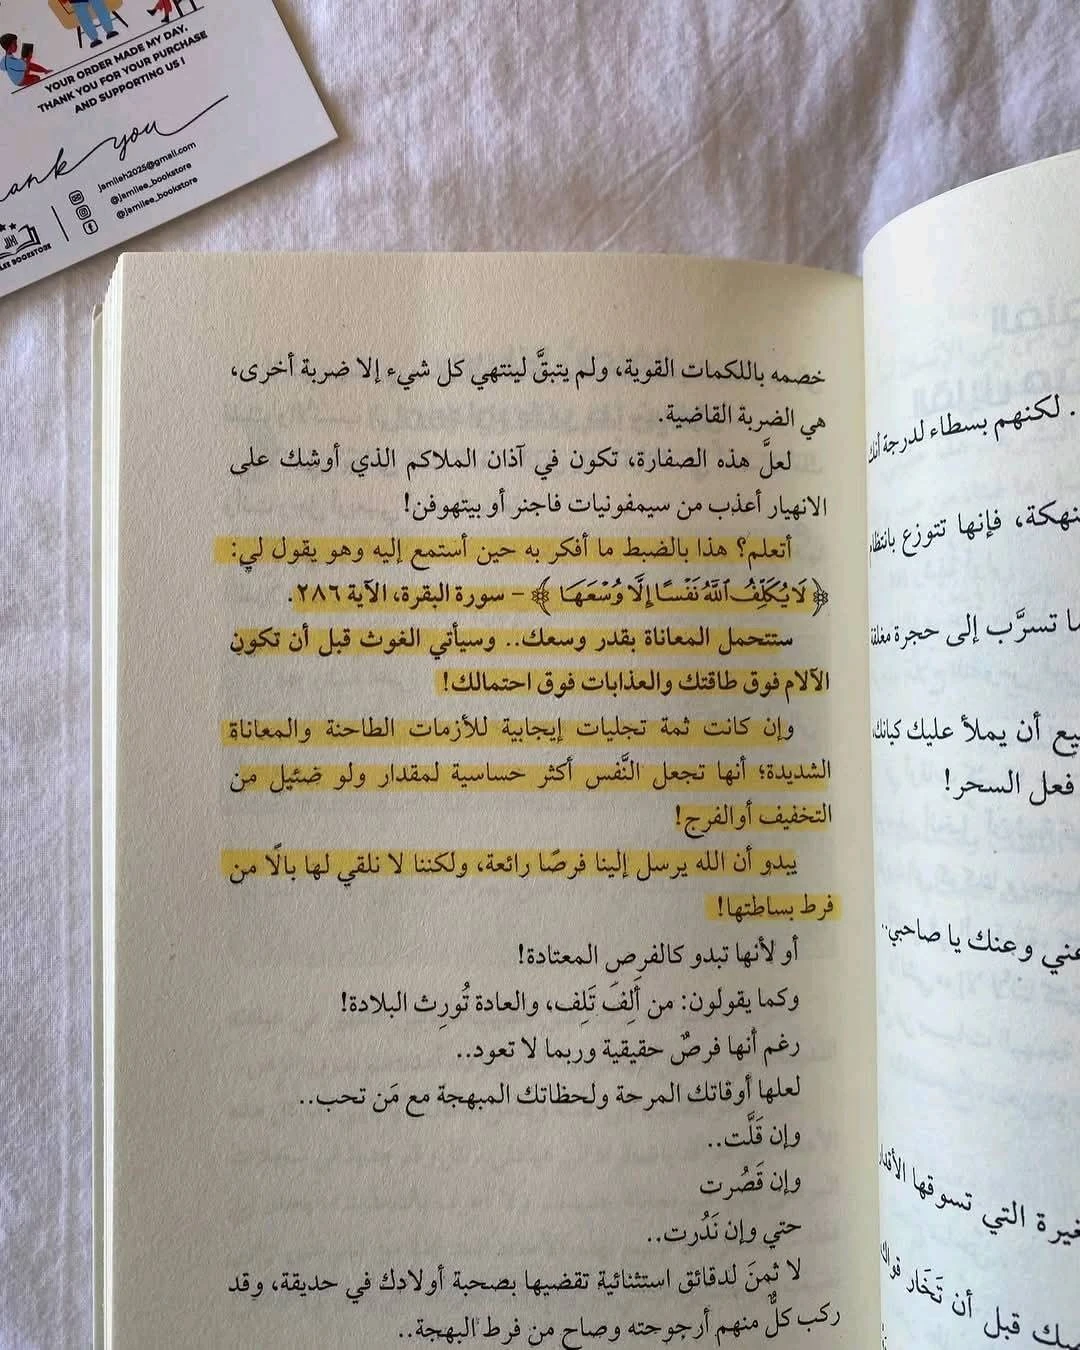 YOUR ORDER MADE MY DAY.
THANK YOU FOR YOUR PURCHASE
AND SUPPORTING US !
you
jamileh2025@gmail.com
@jamilee_bookstore
@jamilee_bookstore
BOOKSTORE
خصمه باللكمات القوية، ولم يتبقَّ لينتهي كل شيء إلا ضربة أخرى،
هي الضربة القاضية.
لعلَّ هذه الصفارة، تكون في آذان الملاكم الذي أوشك على
الانهيار أعذب من سيمفونيات فاجنر أو بيتهوفن!
أتعلم؟ هذا بالضبط ما أفكر به حين أستمع إليه وهو يقول لي:
﴿لَا يُكَلِّفُ ٱللَّهُ نَفْسًا إِلَّا وُسْعَهَا﴾ – سورة البقرة، الآية ٢٨٦.
ستتحمل المعاناة بقدر وسعك.. وسيأتي الغوث قبل أن تكون
الآلام فوق طاقتك والعذابات فوق احتمالك!
وإن كانت ثمة تجليات إيجابية للأزمات الطاحنة والمعاناة
الشديدة؛ أنها تجعل النَّفس أكثر حساسية لمقدار ولو ضئيل من
التخفيف أوالفرج!
يبدو أن الله يرسل إلينا فرصًا رائعة، ولكننا لا نلقي لها بالًا من
فرط بساطتها!
أو لأنها تبدو كالفرص المعتادة!
وكما يقولون: من أَلِفَ تَلِف، والعادة تُورِث البلادة!
رغم أنها فرصٌ حقيقية وربما لا تعود..
لعلها أوقاتك المرحة ولحظاتك المبهجة مع مَن تحب..
وإن قَلَّت..
وإن قَصُرت
حتي وإن نَدُرت..
لا ثمنَ لدقائق استثنائية تقضيها بصحبة أولادك في حديقة، وقد
ركب كلٌّ منهم أرجوحته وصاح من فرط البهجة..
. لكنهم بسطاء لدرجة أنك
فإنها تتوزع بانتظام
تسرَّب إلى حجرة مغلقة
أن يملأ عليك كيانك
فعل السحر!
وعنك يا صاحبي..
التي تسوقها الأقدار
قبل أن تَخَار